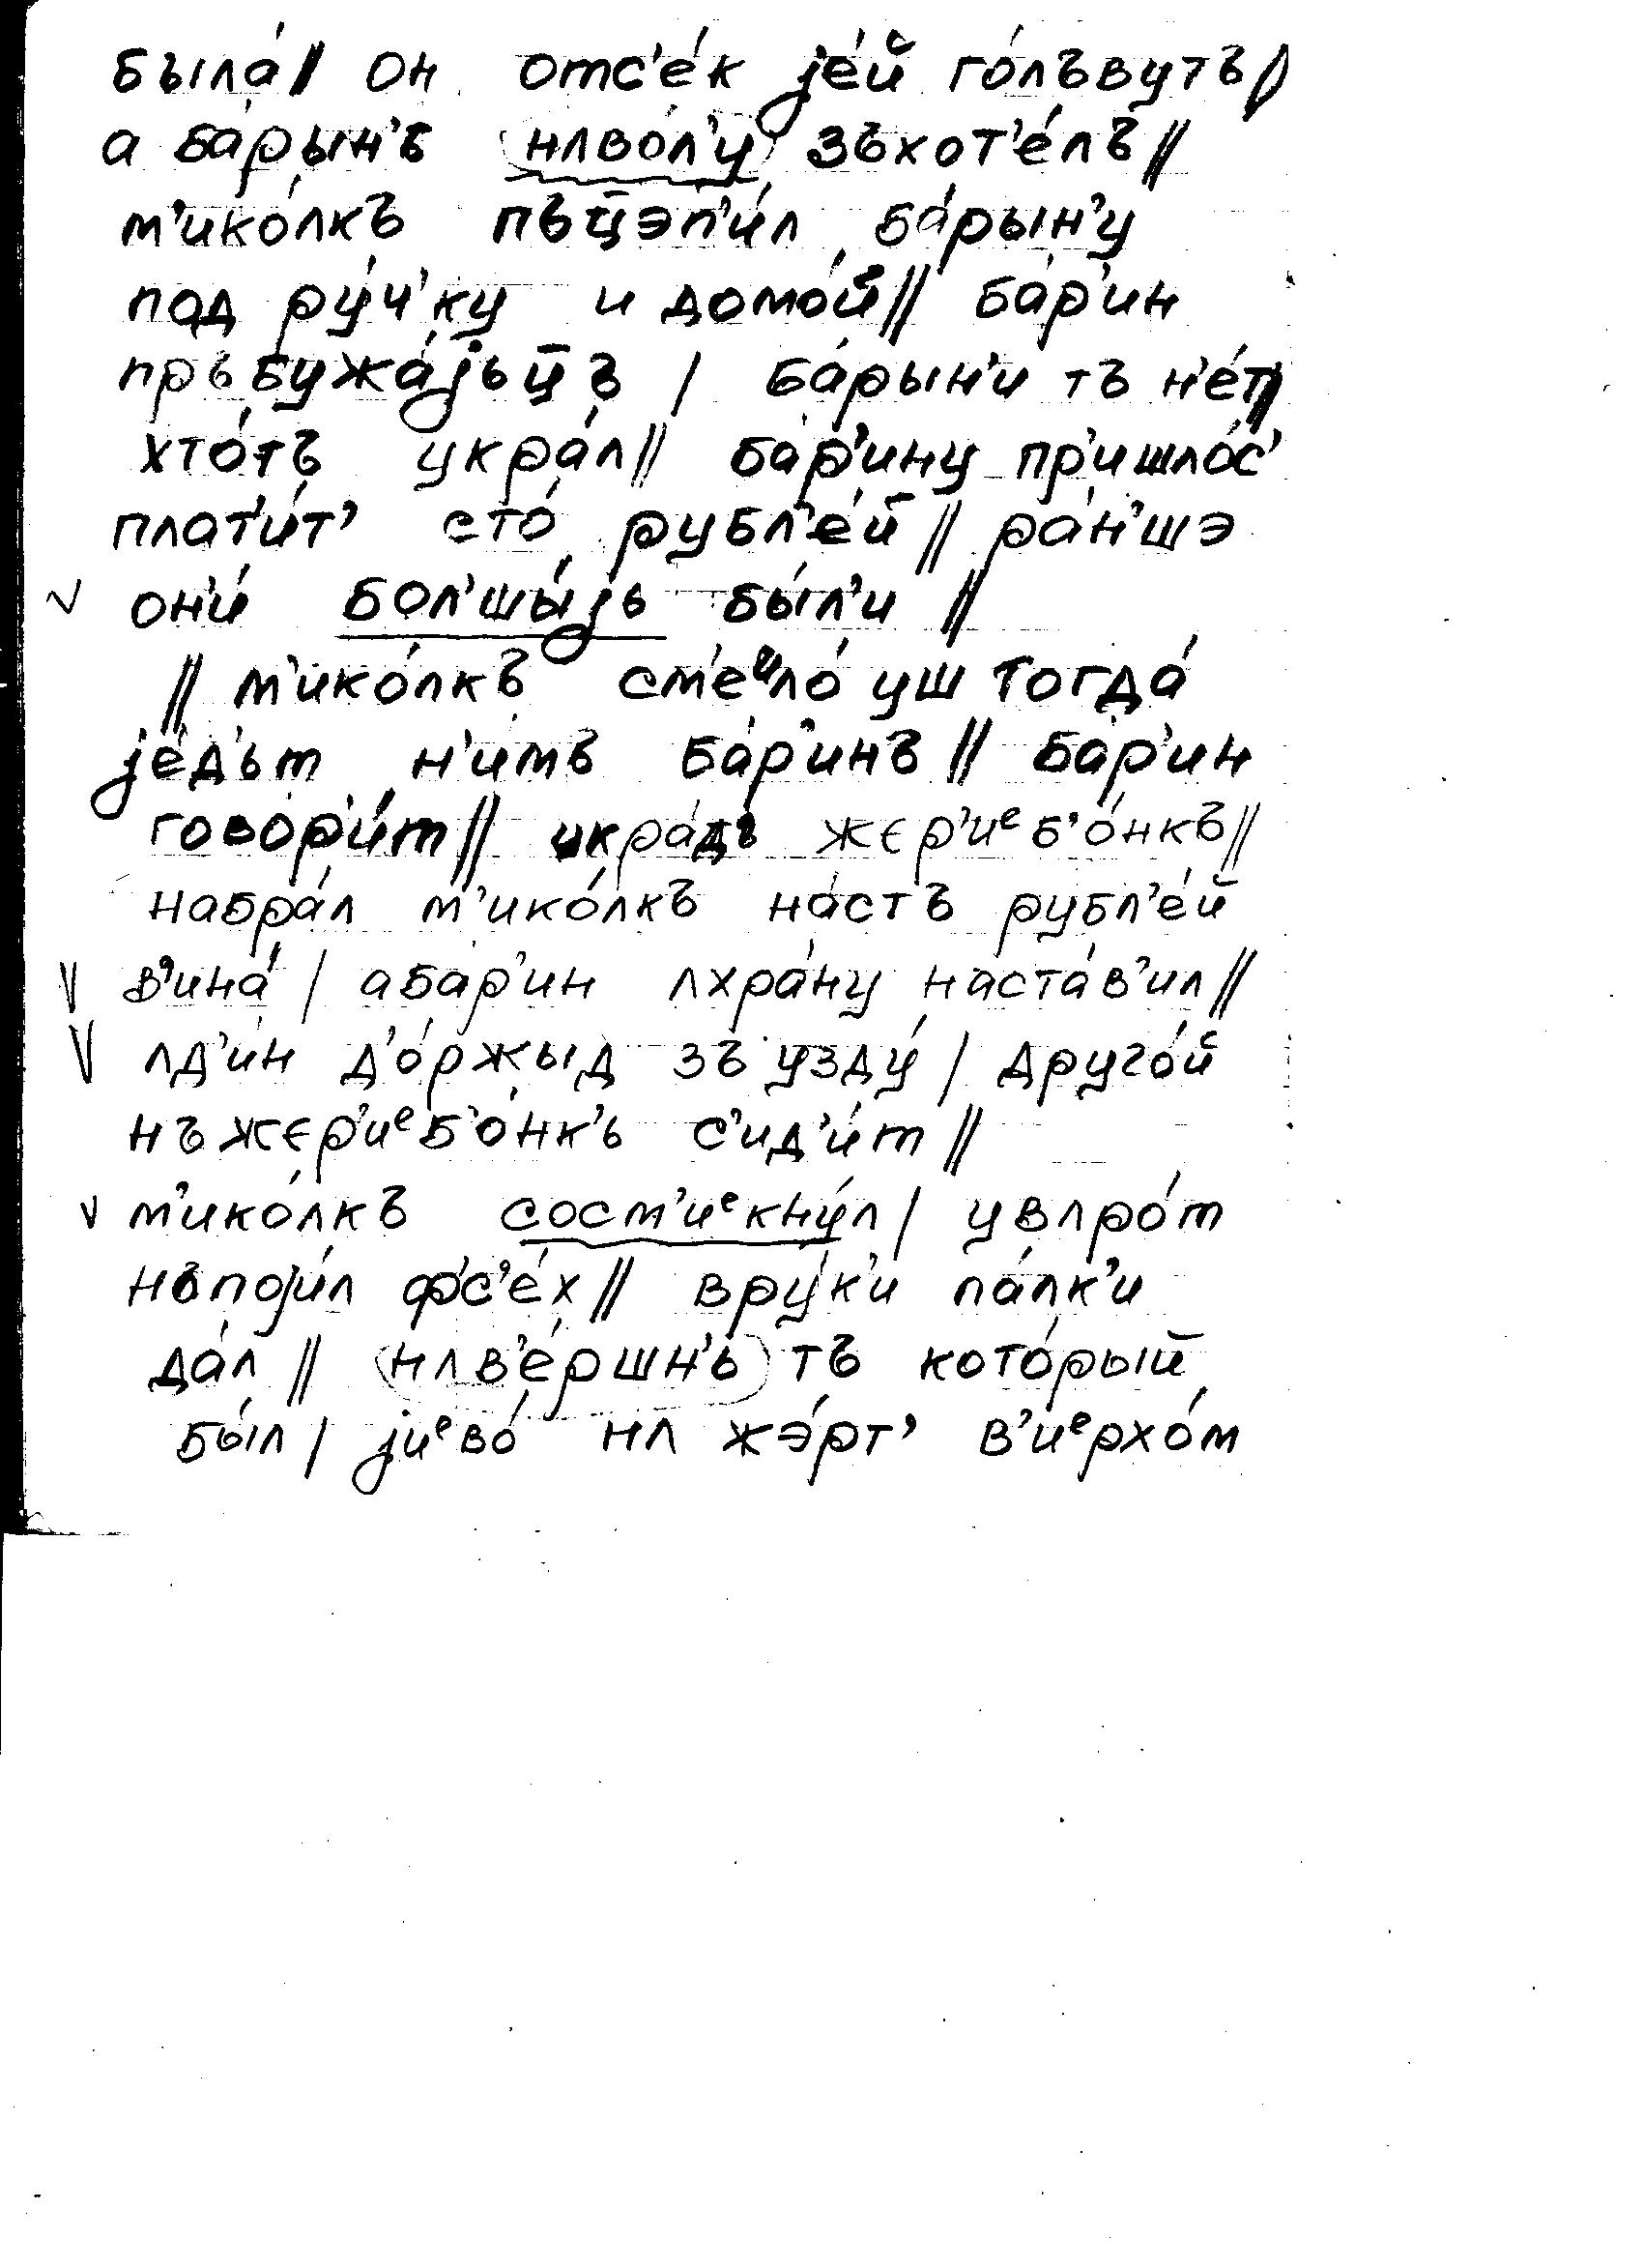 была́ // он отс'е́к јо́й го́лъвутъ //
а ба́рын'ь нʌво́л'у зъхот'е́лъ //
м'ико́лкъ пъцэп'и́л ба́рын'у
под ру́ч'ку и домо́й // ба́р'ин
пръбужа́јьц̄ъ / ба́рын'и тъ н'е́т //
хто́тъ укра́л // ба́р'ину пр'ишло́с'
плат'и́т' сто́ рубл'е́й // ра́н'шэ
он'и́ бол'шы́јь бы́л'и //
// м'ико́лкъ см'еᶦло́ уш тогда́
је́д'ьт н'имъ ба́р'инъ // ба́р'ин
говор'и́т // укра́дь жєр'иᵉб'о́нкъ //
набра́л м'ико́лкъ на́стъ рубл'е́й
в'ина́ / aба́р'ин ʌхра́ну наста́в'ил //
ʌд'и́н д'о́ржыд зъ узду́ / друго́й
нъ жєр'иᵉб'о́нк'ь с'ид'и́т //
м'ико́лкъ сосм'иᵉкну́л / увʌро́т
нъпоји́л ф'с'е́х // вру́к'и па́лк'и
да́л // нʌв'е́ршн'ь тъ кото́рый
бы́л / јиᵉво́ нʌ жэ́рт' в'иᵉрхо́м